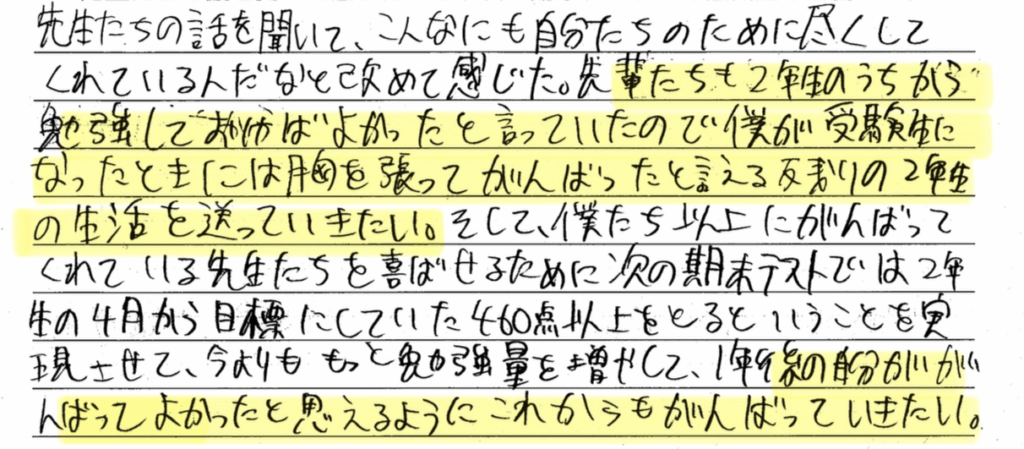 先生たちの話を聞いて、こんなにも自分たちのために尽くして
くれている人だなと改めて感じた。先輩たちも2年生のうちから
勉強しておけばよかったと言っていたので僕が受験生に
なったときには胸を張ってがんばったと言える残りの2年生
の生活を送っていきたい。そして、僕たち以上にがんばって
くれている先生たちを喜ばせるために次の期末テストでは2年
生の4月から目標にしていた460点以上をとるということを実
現させて、今よりももっと勉強量を増やして、1年後の自分ががが
んばってよかったと思えるようにこれからもがんばっていきたい。